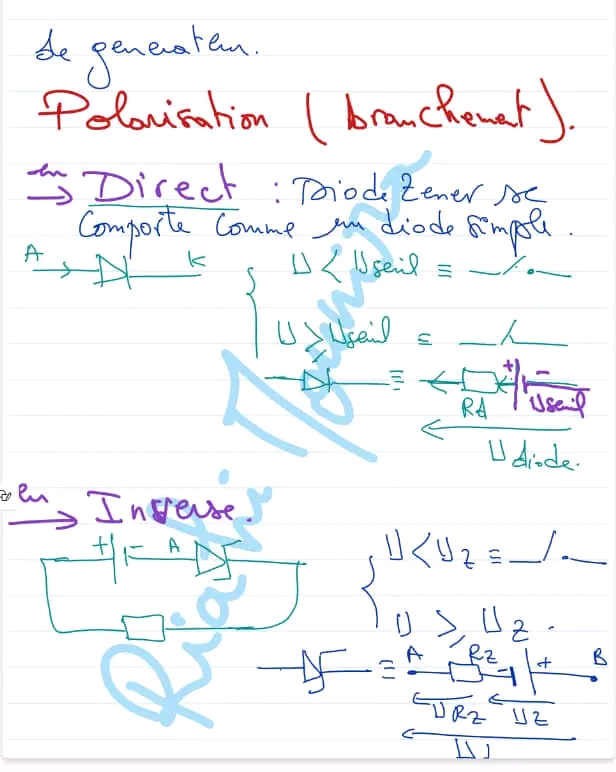 de generateur.
Polarisation (branchement).
en
→ Direct : Diode Zener se
comporte comme un diode simple.
A K
U < Useuil ≡
U ≥ Useuil ≡
≡ + -
Rd Useuil
U diode.
en
→ Inverse.
+ - A
U < Uz ≡
U ≥ Uz.
≡ A Rz + B
URz Uz
U
Riahi Mounira